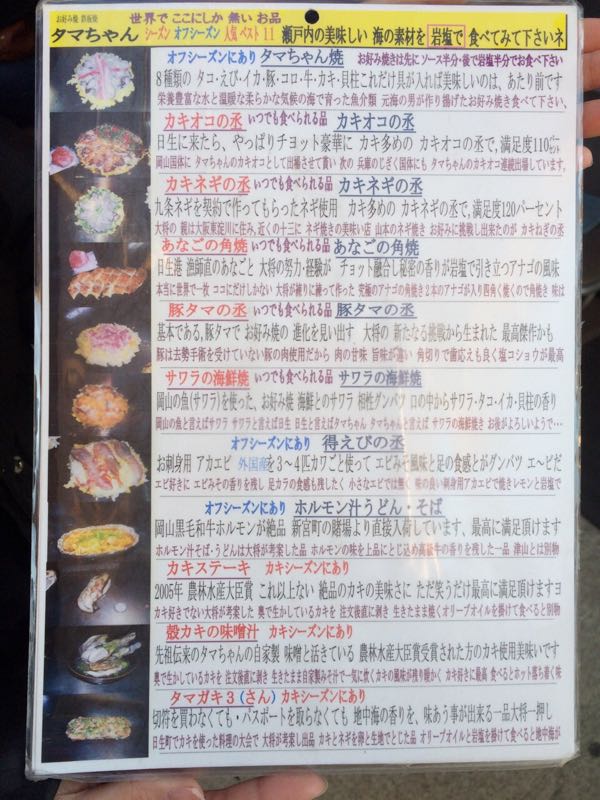 お好み焼 鉄板焼
世界で ここにしか 無い お品
タマちゃん シーズン オフシーズン 人気 ベスト 11 瀬戸内の美味しい 海の素材を 岩塩で 食べてみて下さいネ
オフシーズンにあり タマちゃん焼 お好み焼きは先に ソース半分・後で岩塩半分でお食べ下さい
8種類の タコ・えび・イカ・豚・コロ・牛・カキ・貝柱これだけ具が入れば美味しいのは、あたり前です
栄養豊富な水と温暖な柔らかな気候の海で育った魚介類 元海の男が作り揚げたお好み焼き食べて下さい、
カキオコの丞 いつでも食べられる品 カキオコの丞
日生に来たら、やっぱりチョット豪華に カキ多めの カキオコの丞で、満足度110㌫
岡山国体に タマちゃんのカキオコとして出場させて貰い 次の 兵庫のじぎく国体にも タマちゃんのカキオコ連続出場しています,
カキネギの丞 いつでも食べられる品 カキネギの丞
九条ネギを契約で作ってもらったネギ使用 カキ多めの カキネギの丞で、満足度120パーセント
大将の 親は大阪東淀川に住み、近くの十三に ネギ焼きの美味い店 山本のネギ焼き お好みに挑戦し出来たのが カキねぎの丞
あなごの角焼 いつでも食べられる品 あなごの角焼
日生港 漁師直のあなごと 大将の努力・経験が チョット融合し秘密の香りが岩塩で引き立つアナゴの風味
本当に世界で一枚 ココにだけしかない 大将が練りに練って作った 究極のアナゴの角焼き 2本のアナゴが入り四角く焼くので角焼き 味は
豚タマの丞 いつでも食べられる品 豚タマの丞
基本である,豚タマで お好み焼の 進化を見い出す 大将の 新たなる挑戦から生まれた 最高傑作かも
豚は去勢手術を受けていない豚の肉使用だから 肉の甘味 旨味が違い 角切りで歯応えも良く塩コショウが最高
サワラの海鮮焼 いつでも食べられる品 サワラの海鮮焼
岡山の魚(サワラ)を使った、お好み焼 海鮮とのサワラ 相性グンバツ 口の中からサワラ・タコ・イカ・貝柱の香り
岡山の魚と言えばサワラ サワラと言えば日生 日生と言えばタマちゃん タマちゃんと言えば サワラの海鮮焼き お後がよろしいようで・・・
オフシーズンにあり 得えびの丞
お刺身用 アカエビ 外国産を3〜4匹カワごと使って エビみそ風味と足の食感とがグンバツ エ〜ビだ
エビ好きに エビみその香りを 残し 足カラの食感も残したく 小さなエビでは無く 味の良い刺身用アカエビで焼きレモンと岩塩で
オフシーズンにあり ホルモン汁うどん・そば
岡山黒毛和牛ホルモンが絶品 新宮町の賭場より直接入荷しています、最高に満足頂けます
ホルモン汁そば・うどんは大将が考案した品 ホルモンの味を上品にとじ込め高級牛の香りを残した一品 津山とは別物
カキステーキ カキシーズンにあり
2005年 農林水産大臣賞 これ以上ない 絶品のカキの美味さに ただ笑うだけ最高に満足頂けますヨ
カキ好きでない大将が考案した 奥で生かしているカキを 注文後直に剥き 生きたまま焼くオリーブオイルを掛けて食べると別物
殻カキの味噌汁 カキシーズンにあり
先祖伝来のタマちゃんの自家製 味噌と活きている 農林水産大臣賞受賞された方のカキ使用美味いです
奥で生かしているカキを 注文後直に剥き 生きたまま自家製みそ汁で一気に炊くカキの風味が残り暖かく カキ好きに最高 食べるとホット落ち着く味
タマガキ3(さん) カキシーズンにあり
切符を買わなくても・パスポートを取らなくても 地中海の香りを、味あう事が出来る一品大将一押し
日生町でカキを使った料理の大会で 大将が考案し出品 カキとネギを卵と生地でとじた品 オリーブオイルと岩塩を掛けて食べると地中海が